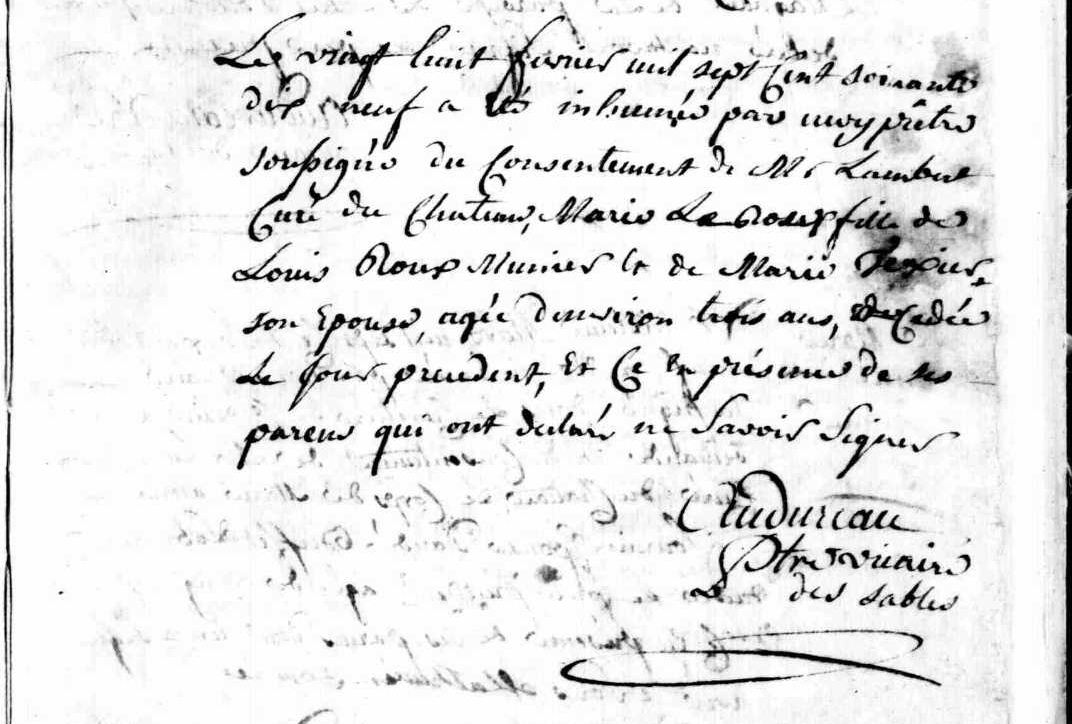 Le vingt huit fevrier mil sept Cent soixante
dix neuf a été inhumée par moy prêtre
soussigné du Consentement de Mr Lambert
Curé du Chateau, Marie Le Roux fille de
Louis Roux Munier et de Marie
son Epouse, agée d'environ trois ans, decedée
Le Jour precedent, Et Ce En présence de ses
parens qui ont declaré ne Savoir Signer
Audureau
Ptre vicaire
des sables